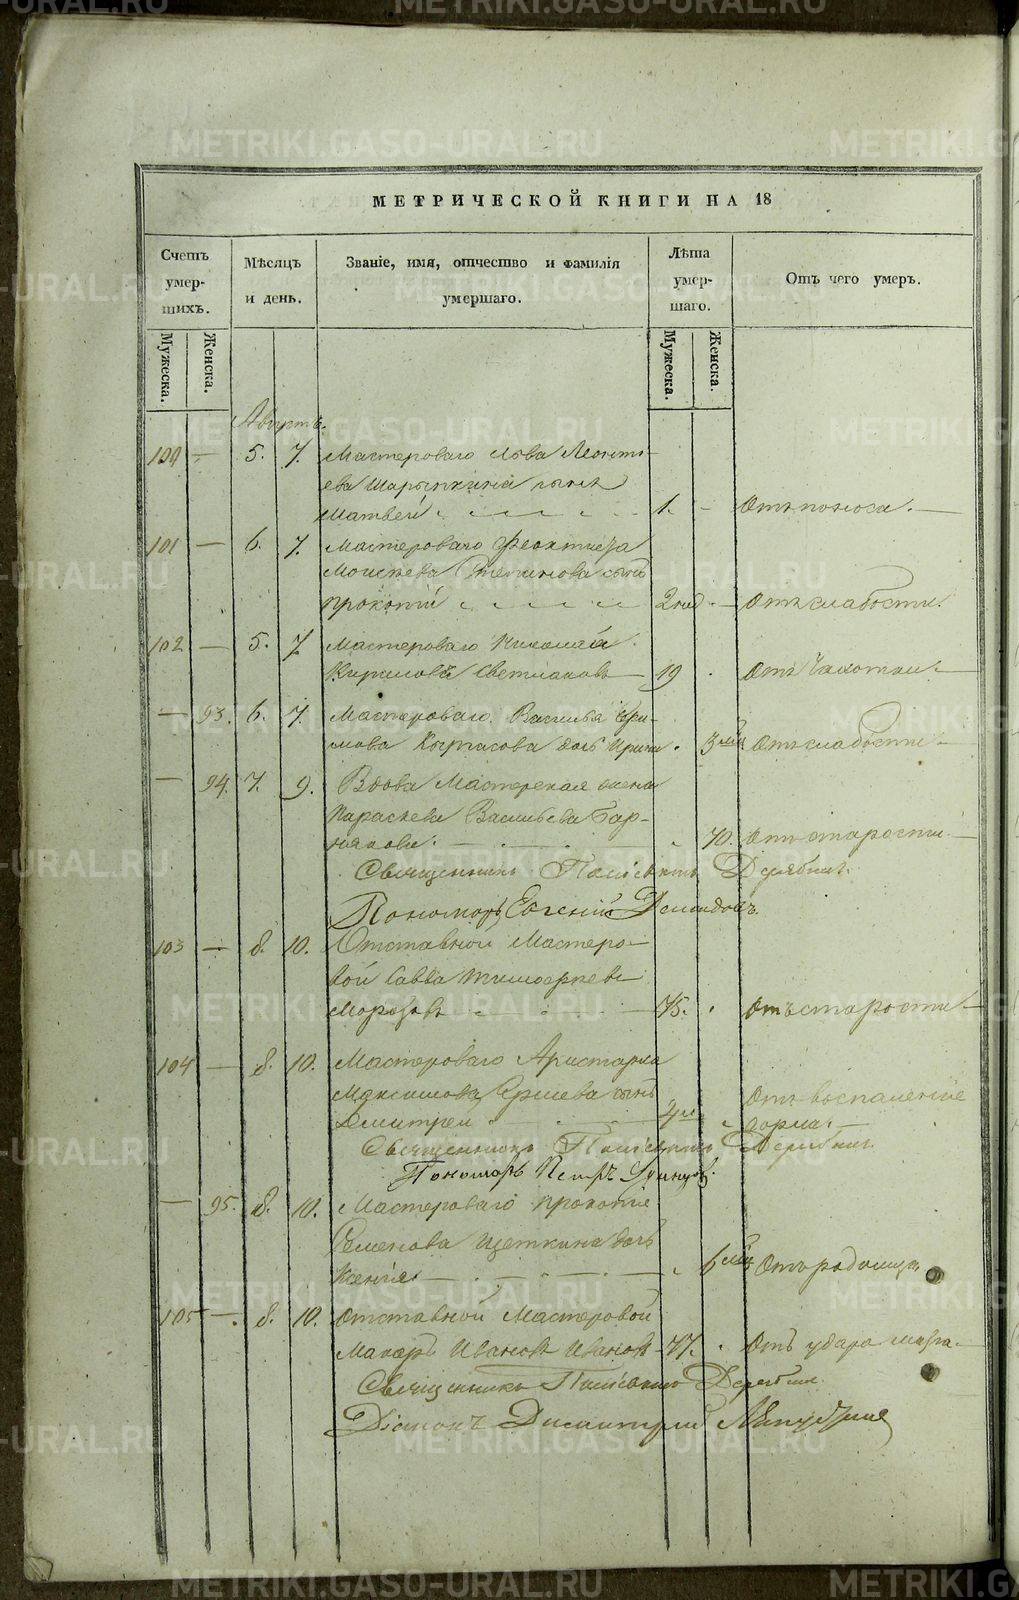 МЕТРИЧЕСКОЙ КНИГИ НА 18
Счетъ умер-шихъ.
Мѣсяцъ и день.
Званіе, имя, отчество и фамилія умершаго.
Лѣта умер-шаго.
Отъ чего умеръ.
Мужеска.
Женска.
Мужеска.
Женска.
Августъ.
100 — 5. 7. Мастероваго Льва Леонть-
ева Шарыпкина сынъ
Матвей 1. — Отъ поноса.
101 — 6. 7. Мастероваго Феоктиста
Моисеева сынъ
Прокопій 2 нед. — Отъ слабости.
102 — 5. 7. Мастероваго Николай
Кириловъ Светлаковъ 19 Отъ Чахотки
— 93. 6. 7. Мастероваго Василья
дочь Ирина 3 мѣс Отъ слабости
— 94. 7. 9. Вдова Мастерская жена
Параскева Васильева
70. Отъ старости
Священникъ Дерябинъ.
Пономарь Евгеній Демидовъ.
103 — 8. 10. Отставной Мастеро-
вой Савва Тимофеевъ
Морозовъ 75. Отъ старости
104 — 8. 10. Мастероваго Аристарха
Максимова Ершева сынъ
Димитрей Отъ воспаленіе
горла.
Священникъ Дерябинъ.
Пономарь Петръ
— 95. 8. 10. Мастероваго Прокопіе
Семенова Щеткина дочь
Ксенія 6 мѣс Отъ родимца
105 — 8. 10. Отставной Мастеровой
Макаръ Ивановъ Ивановъ 77. Отъ удара
Священникъ Дерябинъ.
Діаконъ Димитрій